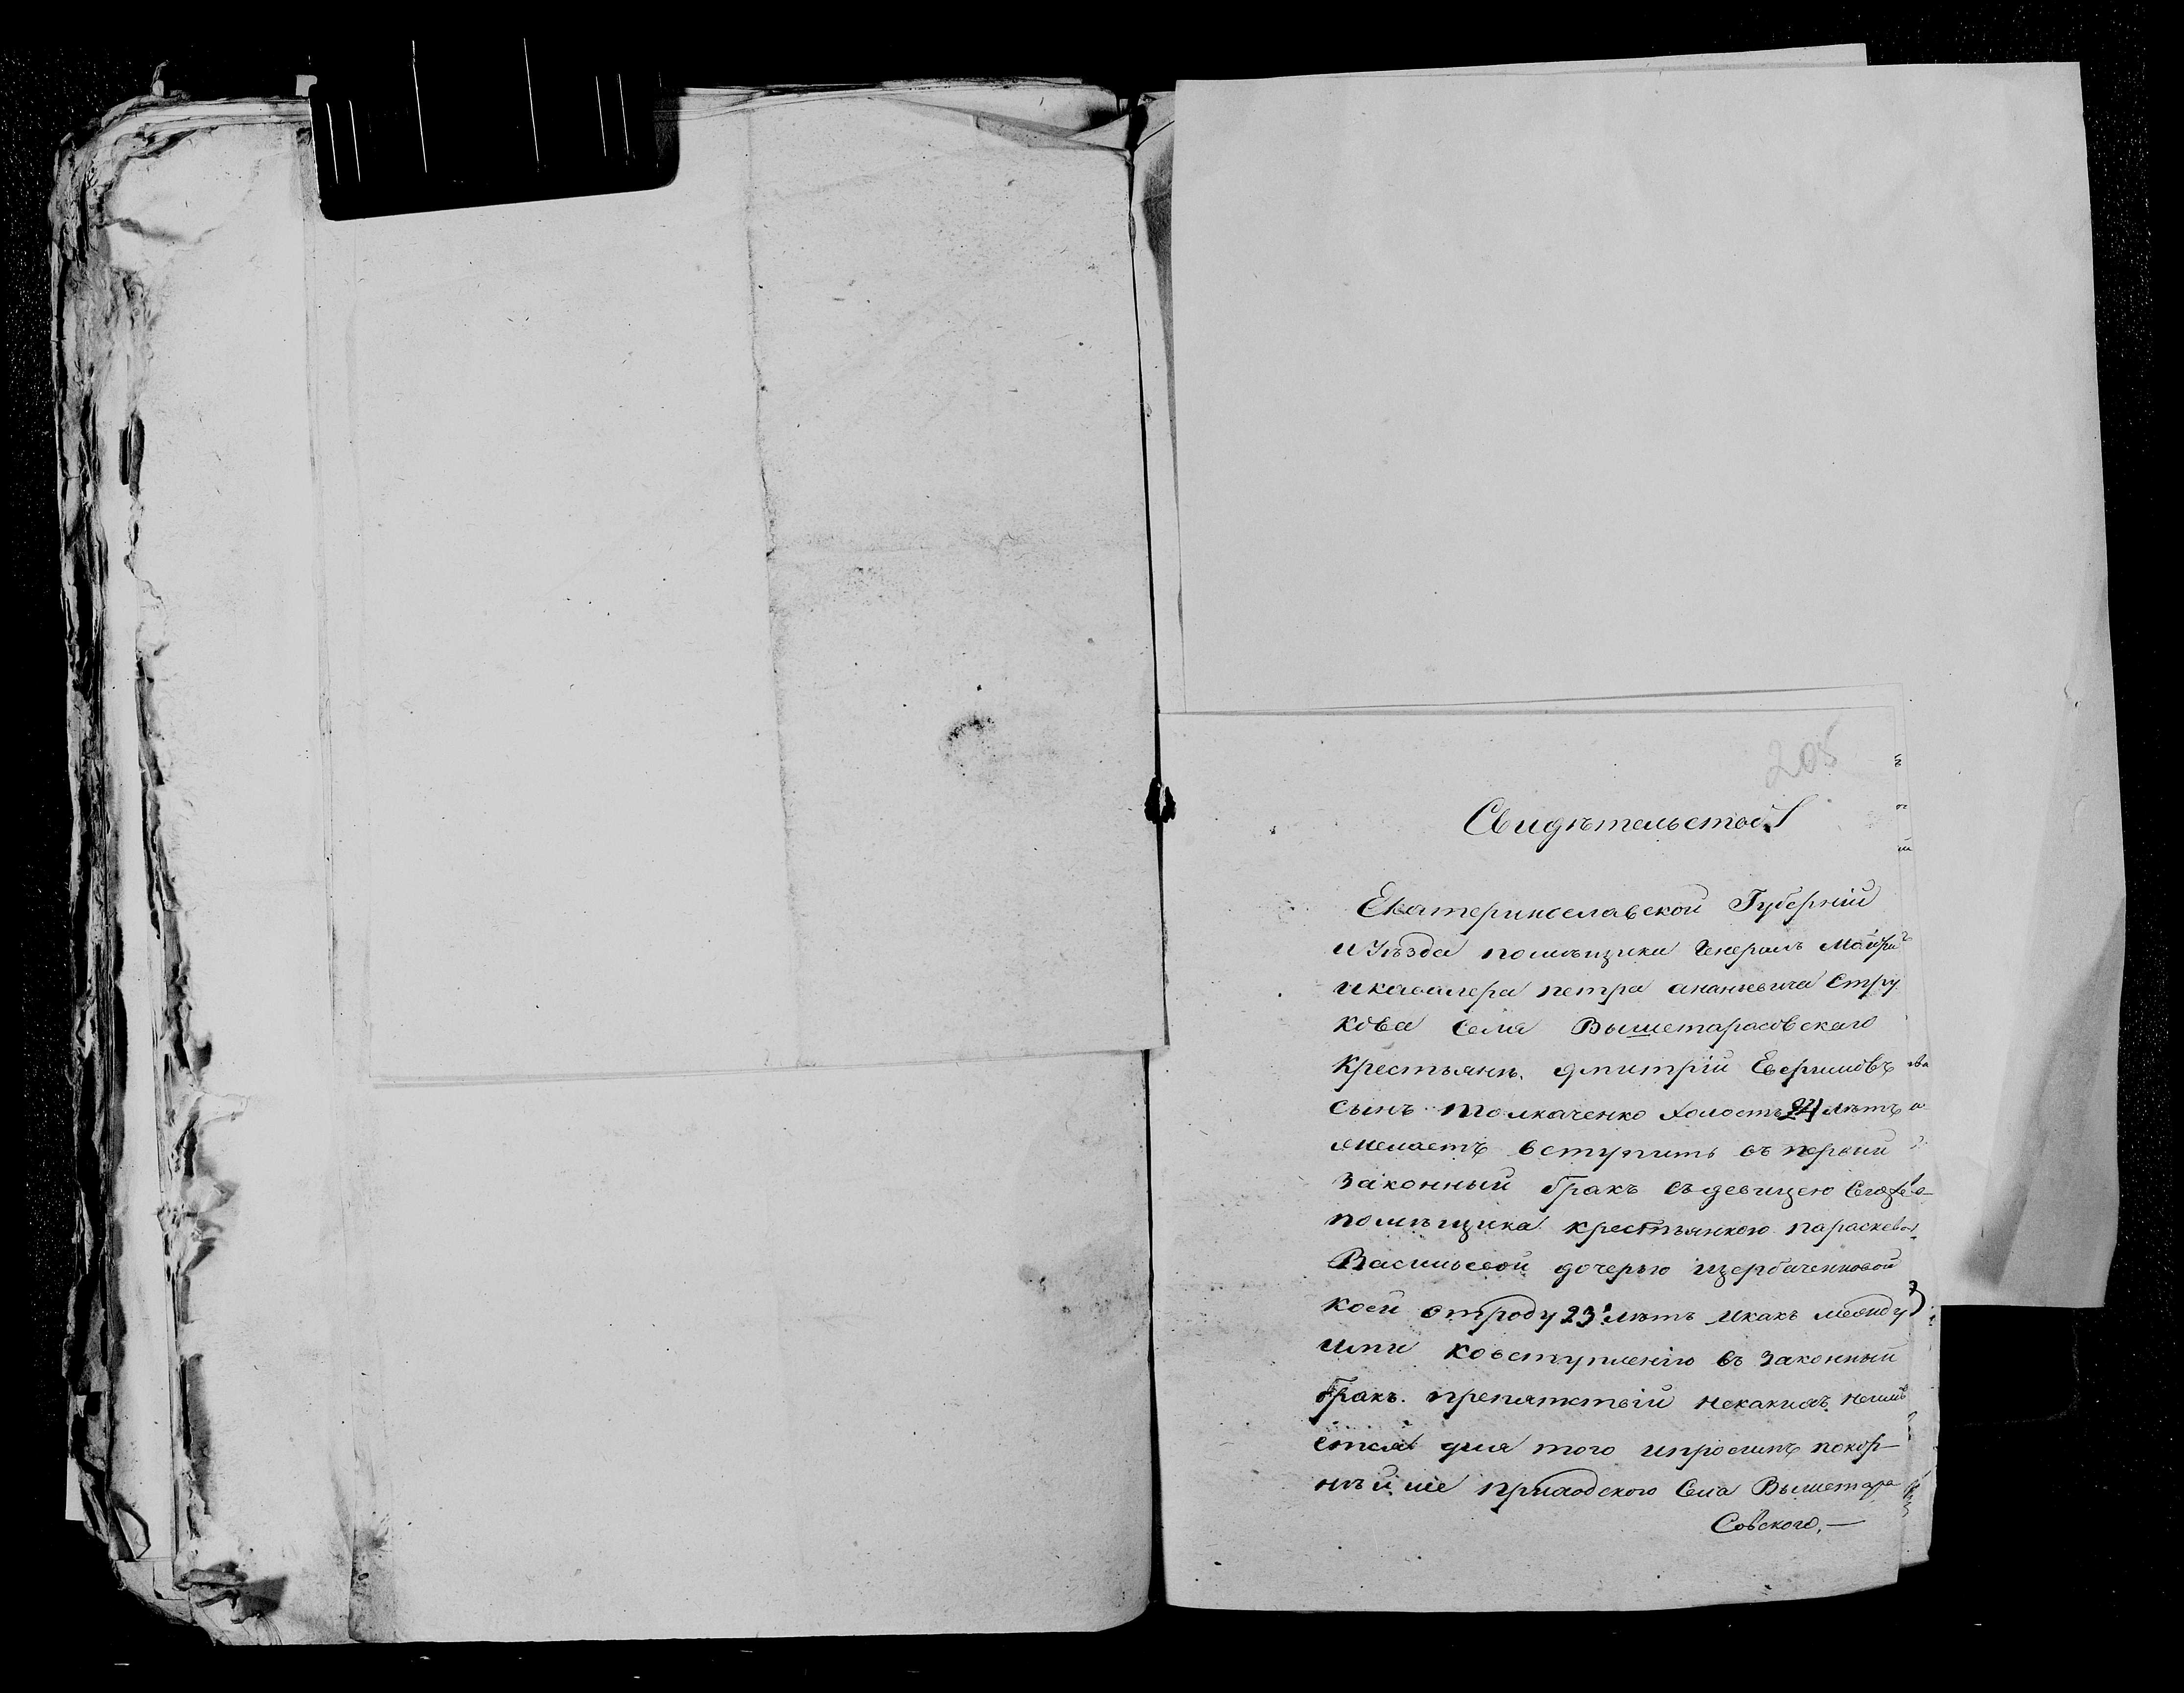 205
Свидѣтельство
Екатеринославской Губерніи
и Уѣзда помѣщика Генералъ Маіора
икавалера петра ананьевича Стру
кова Села Вышетарасовскаго
Крестьянъ. дмитрій Ефримовъ
сынъ толкаченко холостъ 24 лѣтъ
желаетъ вступить въ первый
законный бракъ съдевицею Сегоже
помѣщика крестьянкою параскевою
Васильевой дочерью щербаченковой
коей отроду 23 лѣтъ икакъ между
ими ковступленію въ законный
бракъ. препятствій некакихъ неимѣ
ется для того ипросимъ покор-
нѣйше приходского Села Вышетара
совского.—